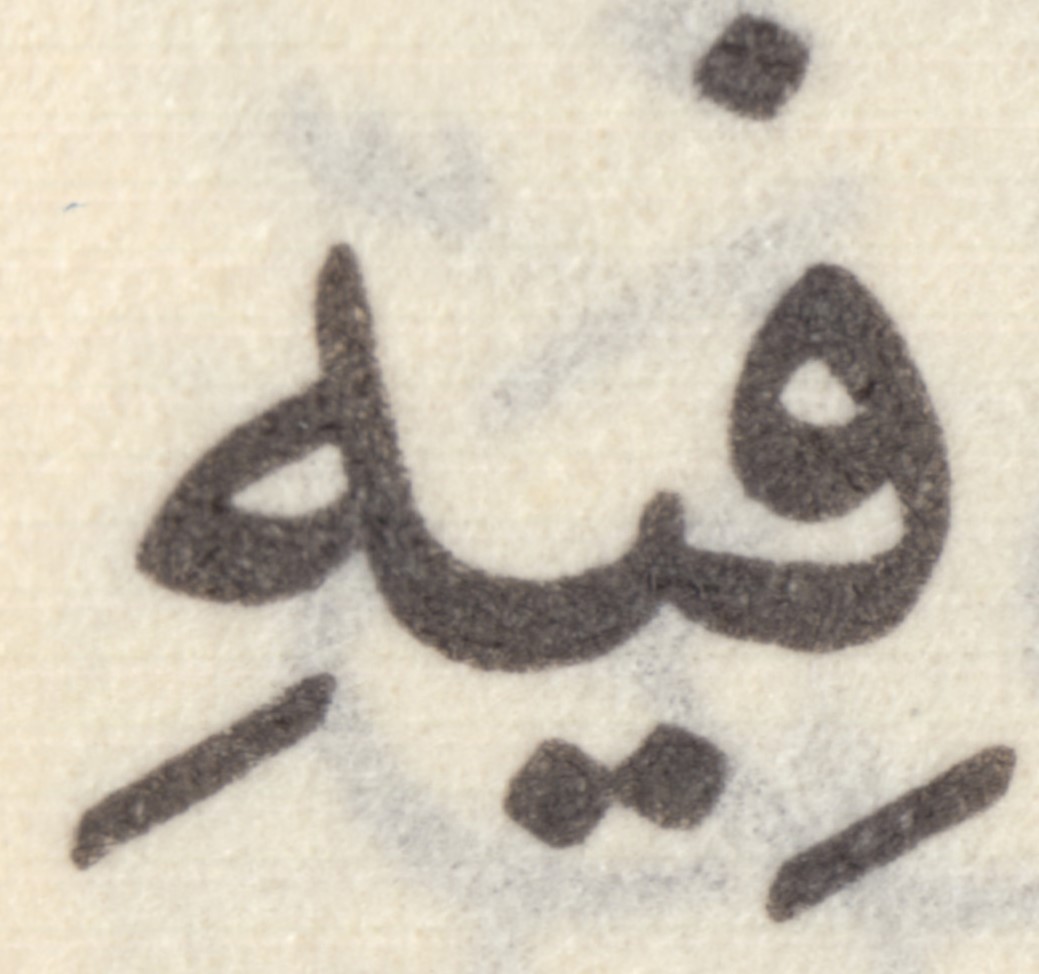 فِيهِ